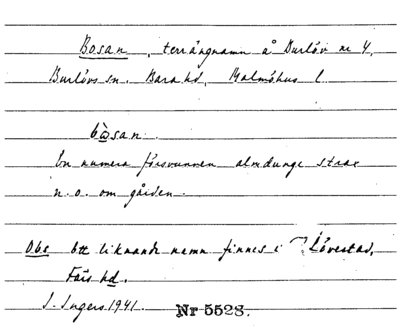 Bosan, terrängnamn å Burlöv nr 4,
Burlövs sn. Bara hd, Malmöhus l.
bωsan.
En numera försvunnen almdunge strax
n. o. om gården.
Obs ett liknande namn finnes i Lövestad,
Färs hd.
I. Ingers 1941 Nr 5528.